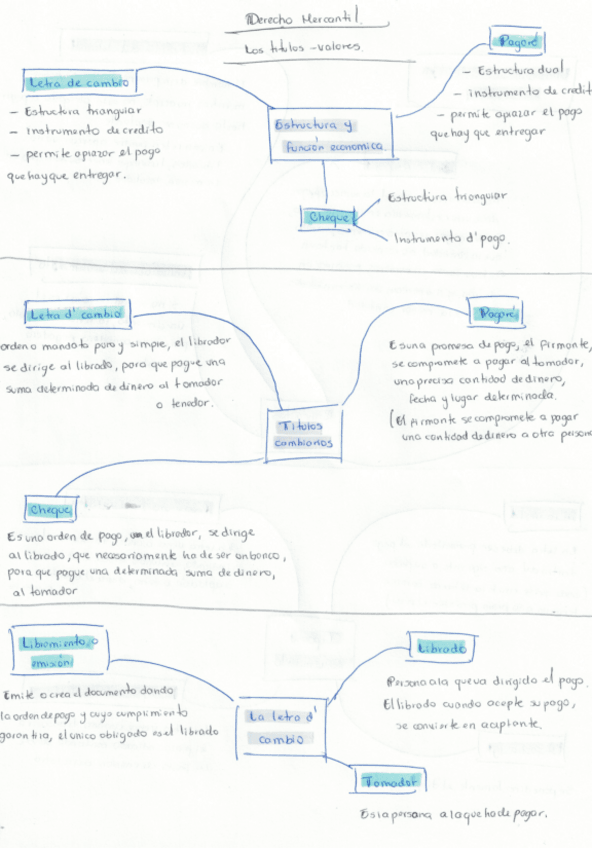 Derecho Mercantil.
Los títulos -valores.
Letra de cambio
- Estructura triangular
- instrumento de credito
- permite aplazar el pago
que hay que entregar.
Estructura y
función economica.
Pagaré
- Estructura dual
- instrumento de credit
- permite aplazar el pago
que hay que entregar
Cheque
Estructura triangular
Instrumento d' pago.
Letra d' cambio
orden o mandato puro y simple, el librador
se dirige al librado, para que pague una
suma determinada de dinero al tomador
o tenedor.
Títulos
cambiarios
Pagaré
Es una promesa de pago, el firmante,
se compromete a pagar al tomador,
una precisa cantidad de dinero,
fecha y lugar determinada.
(El firmante se compromete a pagar
una cantidad de dinero a otra persona
Cheque
Es una orden de pago, el librador, se dirige
al librado, que necesariamente ha de ser un banco,
para que pague una determinada suma de dinero,
al tomador
Libramiento o
emisión
Emite o crea el documento dando
la orden de pago y cuyo cumplimiento
garantiza, el unico obligado es el librado
La letra d'
cambio
Librado
Persona a la que va dirigido el pago.
El librado cuando acepte su pago,
se convierte en aceptante.
Tomador
Es la persona a la que ha de pagar.